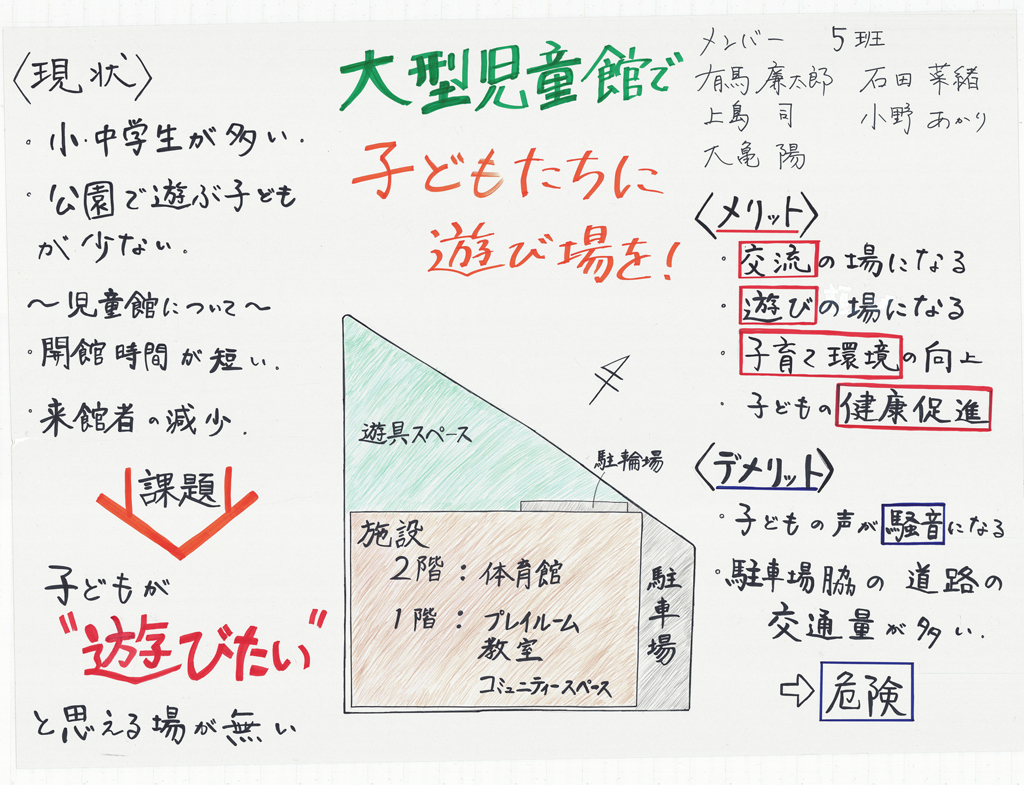 大型児童館で
子どもたちに
遊び場を！
メンバー　5班
有馬 廉太郎　石田 菜緒
上島 司　小野 あかり
大亀 陽
〈現状〉
・小・中学生が多い．
・公園で遊ぶ子ども
が少ない．
～児童館について～
・開館時間が短い．
・来館者の減少．
課題
子どもが
"遊びたい"
と思える場が無い
遊具スペース
駐輪場
施設
2階：体育館
1階：プレイルーム
教室
コミュニティースペース
駐車場
〈メリット〉
・交流の場になる
・遊びの場になる
・子育て環境の向上
・子どもの健康促進
〈デメリット〉
・子どもの声が騒音になる
・駐車場脇の道路の
交通量が多い．
⇨危険